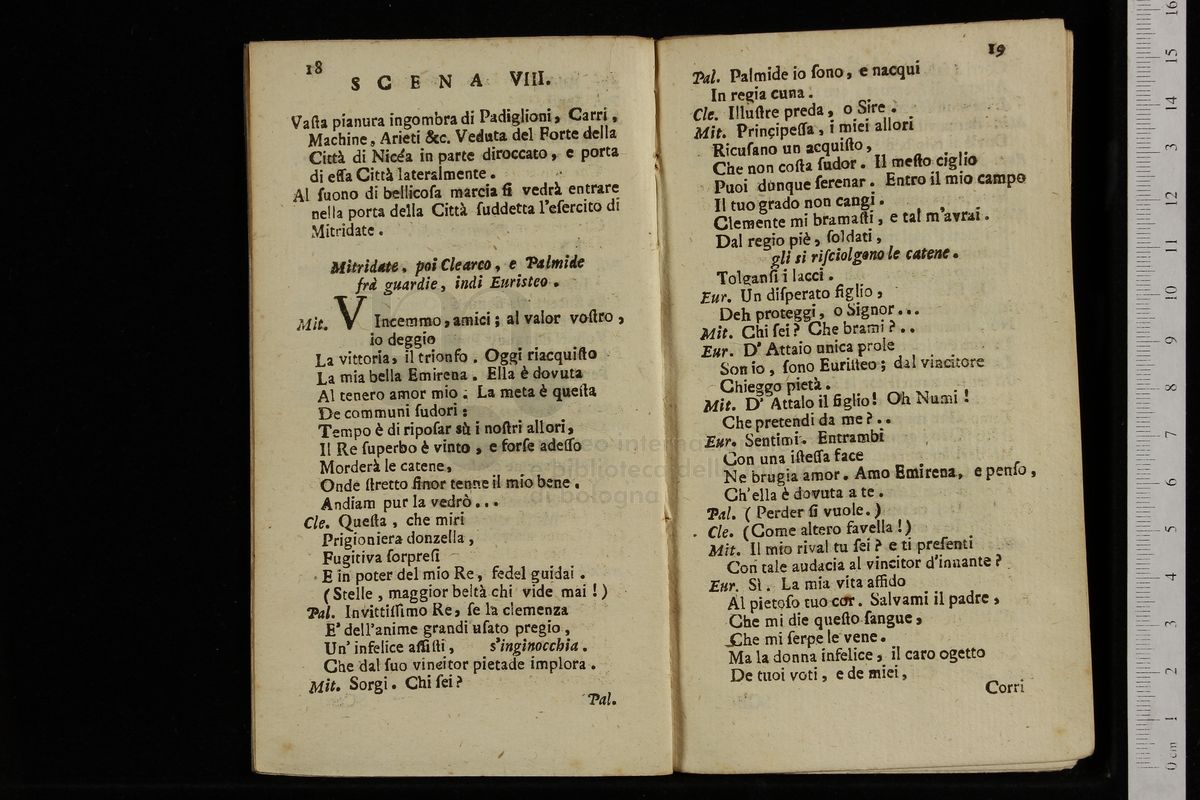 18
SCENA VIII.
Vaſta pianura ingombra di Padiglioni, Carri,
Machine, Arieti &c. Veduta del Forte della
Città di Nicéa in parte diroccato, e porta
di eſſa Città lateralmente.
Al ſuono di bellicoſa marcia ſi vedrà entrare
nella porta della Città ſuddetta l'eſercito di
Mitridate.
Mitridate, poi Clearco, e Palmide
frà guardie, indi Euriſteo.
Mit. VIncemmo, amici; al valor voſtro,
io deggio
La vittoria, il trionfo. Oggi riacquiſto
La mia bella Emirena. Ella è dovuta
Al tenero amor mio. La meta è queſta
De communi ſudori:
Tempo è di ripoſar sù i noſtri allori,
Il Re ſuperbo è vinto, e forſe adeſſo
Morderà le catene,
Onde ſtretto ſinor tenne il mio bene.
Andiam pur la vedrò...
Cle. Queſta, che miri
Prigioniera donzella,
Fugitiva ſorpreſi
E in poter del mio Re, fedel guidai.
(Stelle, maggior beltà chi vide mai!)
Pal. Invittiſſimo Re, ſe la clemenza
E' dell'anime grandi uſato pregio,
Un' infelice aſſiſti, s'inginocchia.
Che dal ſuo vincitor pietade implora.
Mit. Sorgi. Chi ſei?
Pal.
19
Pal. Palmide io ſono, e nacqui
In regia cuna.
Cle. Illuſtre preda, o Sire.
Mit. Principeſſa, i miei allori
Ricuſano un acquiſto,
Che non coſta ſudor. Il meſto ciglio
Puoi dunque ſerenar. Entro il mio campo
Il tuo grado non cangi.
Clemente mi bramaſti, e tal m'avrai.
Dal regio piè, ſoldati,
gli si riſciolgono le catene.
Tolganſi i lacci.
Eur. Un diſperato figlio,
Deh proteggi, o Signor...
Mit. Chi ſei? Che brami?..
Eur. D' Attalo unica prole
Son io, ſono Euriſteo; dal vincitore
Chieggo pietà.
Mit. D' Attalo il figlio! Oh Numi!
Che pretendi da me?..
Eur. Sentimi. Entrambi
Con una iſteſſa face
Ne brugia amor. Amo Emirena, e penſo,
Ch'ella è dovuta a te.
Pal. (Perder ſi vuole.)
Cle. (Come altero favella!)
Mit. Il mio rival tu ſei? e ti preſenti
Con tale audacia al vincitor d'innante?
Eur. Sì. La mia vita affido
Al pietoſo tuo cor. Salvami il padre,
Che mi die queſto ſangue,
Che mi ſerpe le vene.
Ma la donna infelice, il caro ogetto
De tuoi voti, e de miei,
Corri